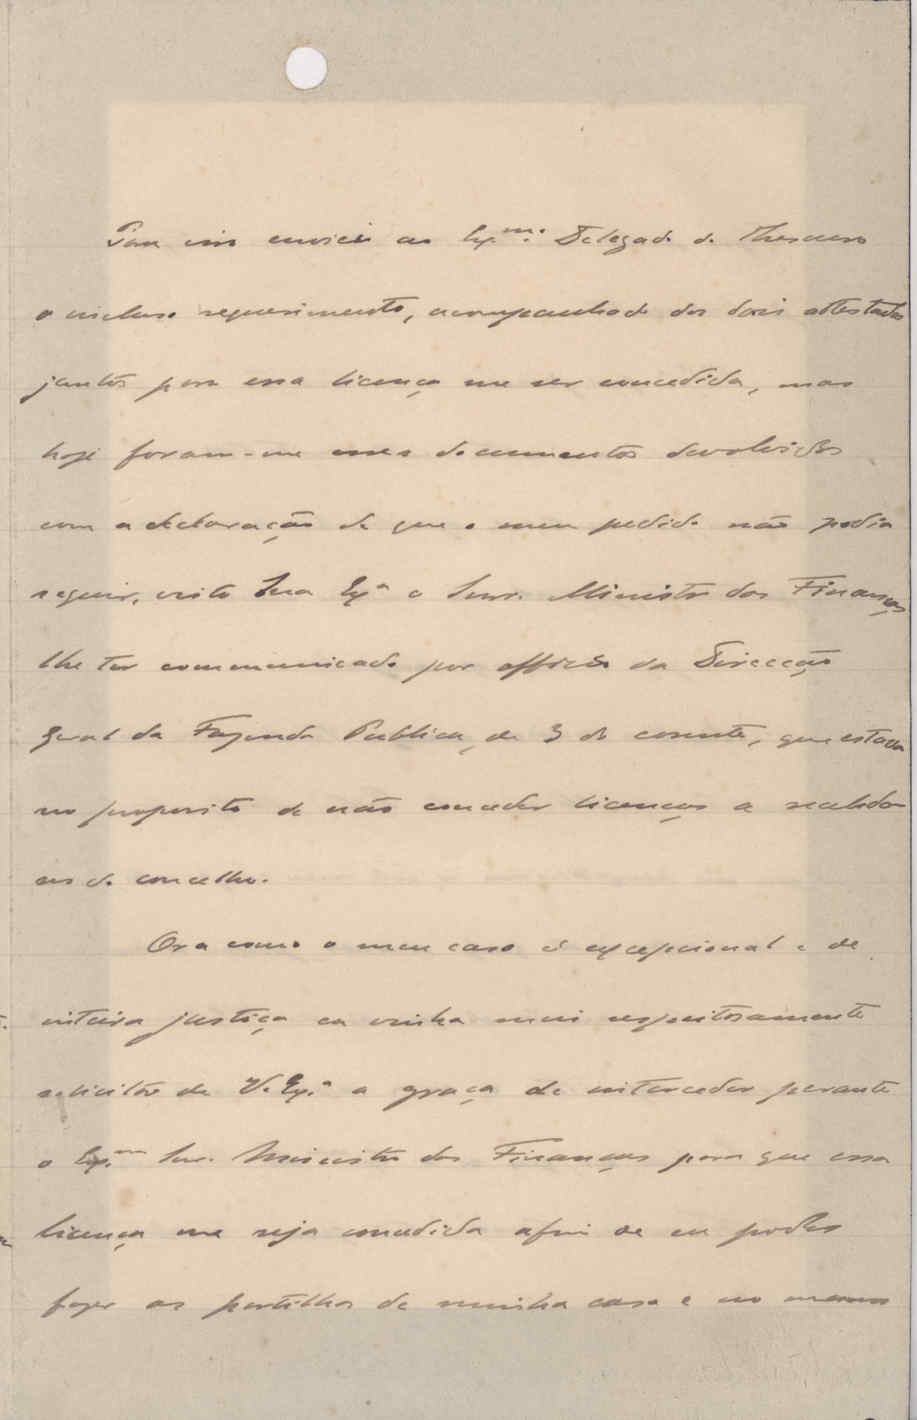 Para isso enviei ao Exmo. Delegado do Thesouro
o incluso requerimento, acompanhado dos dois attestados
juntos para essa licença me ser concedida, mas
hoje foram-me esses documentos devolvidos
com a declaração de que o meu pedido não podia
seguir, visto Sua Exa o Snr. Ministro das Finanças
lhe ter communicado por officio da Direcção
Geral da Fazenda Publica, de 3 do corrente, que estava
no proposito de não conceder licenças a recebedo-
res do concelho.
Ora como o meu caso é excepcional e de
inteira justiça eu vinha mui respeitosamente
solicitar de V. Exa. a graça de interceder perante
o Exmo Snr. Ministro das Finanças para que essa
licença me seja concedida afim de eu poder
fazer as partilhas de minha casa e ao mesmo